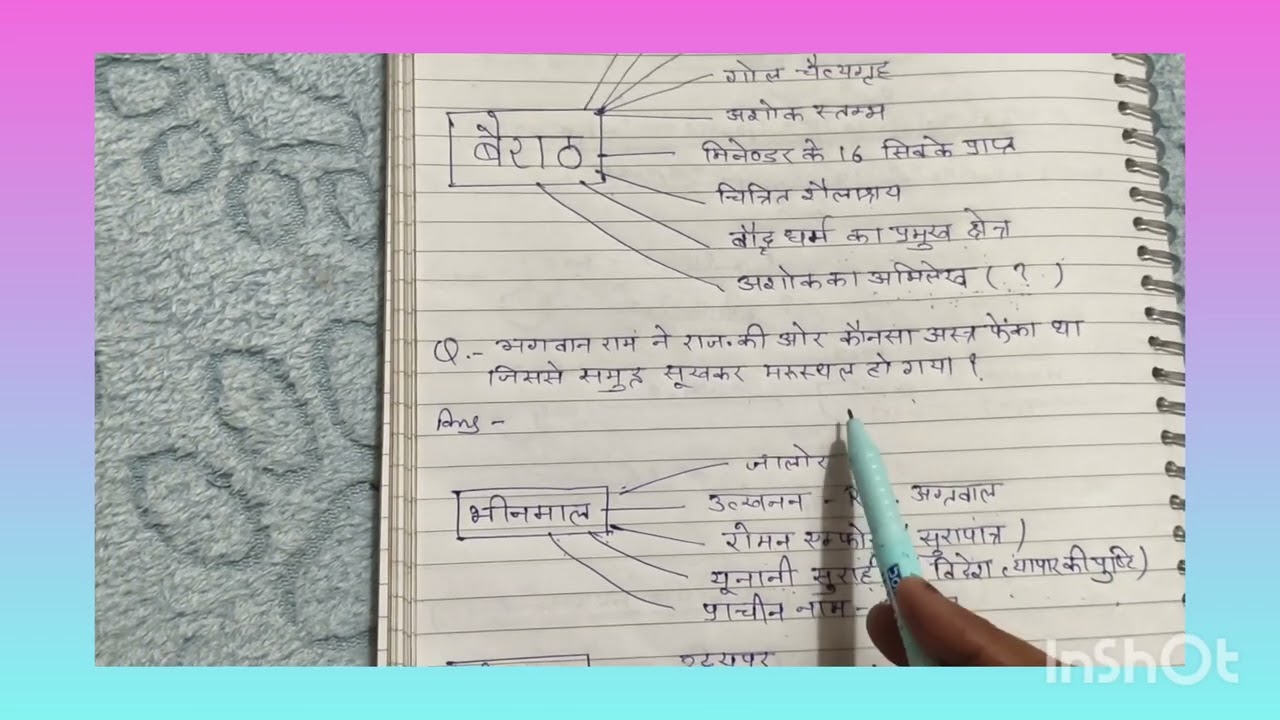 गोल चैत्यगृह
अशोक स्तम्भ
बैराठ
मिनेण्डर के 16 सिक्के प्राप्त
चित्रित शैलाश्रय
बौद्ध धर्म का प्रमुख क्षेत्र
अशोक का अभिलेख ( ? )
Q.- भगवान राम ने राज. की ओर कौनसा अस्त्र फेंका था
जिससे समुद्र सूखकर मरूस्थल हो गया ?
जालोर
भीनमाल
उत्खनन - अग्रवाल
रोमन ( सूरापात्र )
यूनानी विदेश व्यापार की पुष्टि )
प्राचीन नाम -
InShOt